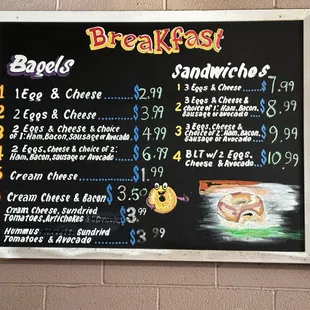 Breakfast
Bagels
1 1 Egg & Cheese.....$2.99
2 2 Eggs & Cheese.....$3.99
3 2 Eggs & Cheese & choice
of 1: Ham, Bacon, Sausage or Avocado...$4.99
4 2 Eggs, Cheese & choice of 2:
Ham, Bacon, Sausage or Avocado....$6.99
5 Cream Cheese.....$1.99
Cream Cheese & Bacon $3.50
Cream Cheese, Sundried
Tomatoes, Artichokes $3.99
Hummus Sundried
Tomatoes & Avocado.....$ .99
Sandwiches
1 3 Eggs & Cheese.....$7.99
2 3 Eggs & Cheese &
choice of 1: Ham, Bacon,
Sausage or Avocado $8.99
3 3 Eggs, Cheese &
choice of 2: Ham, Bacon,
Sausage or Avocado $9.99
4 BLT w/ 2 Eggs,
Cheese & Avocado...$10.99